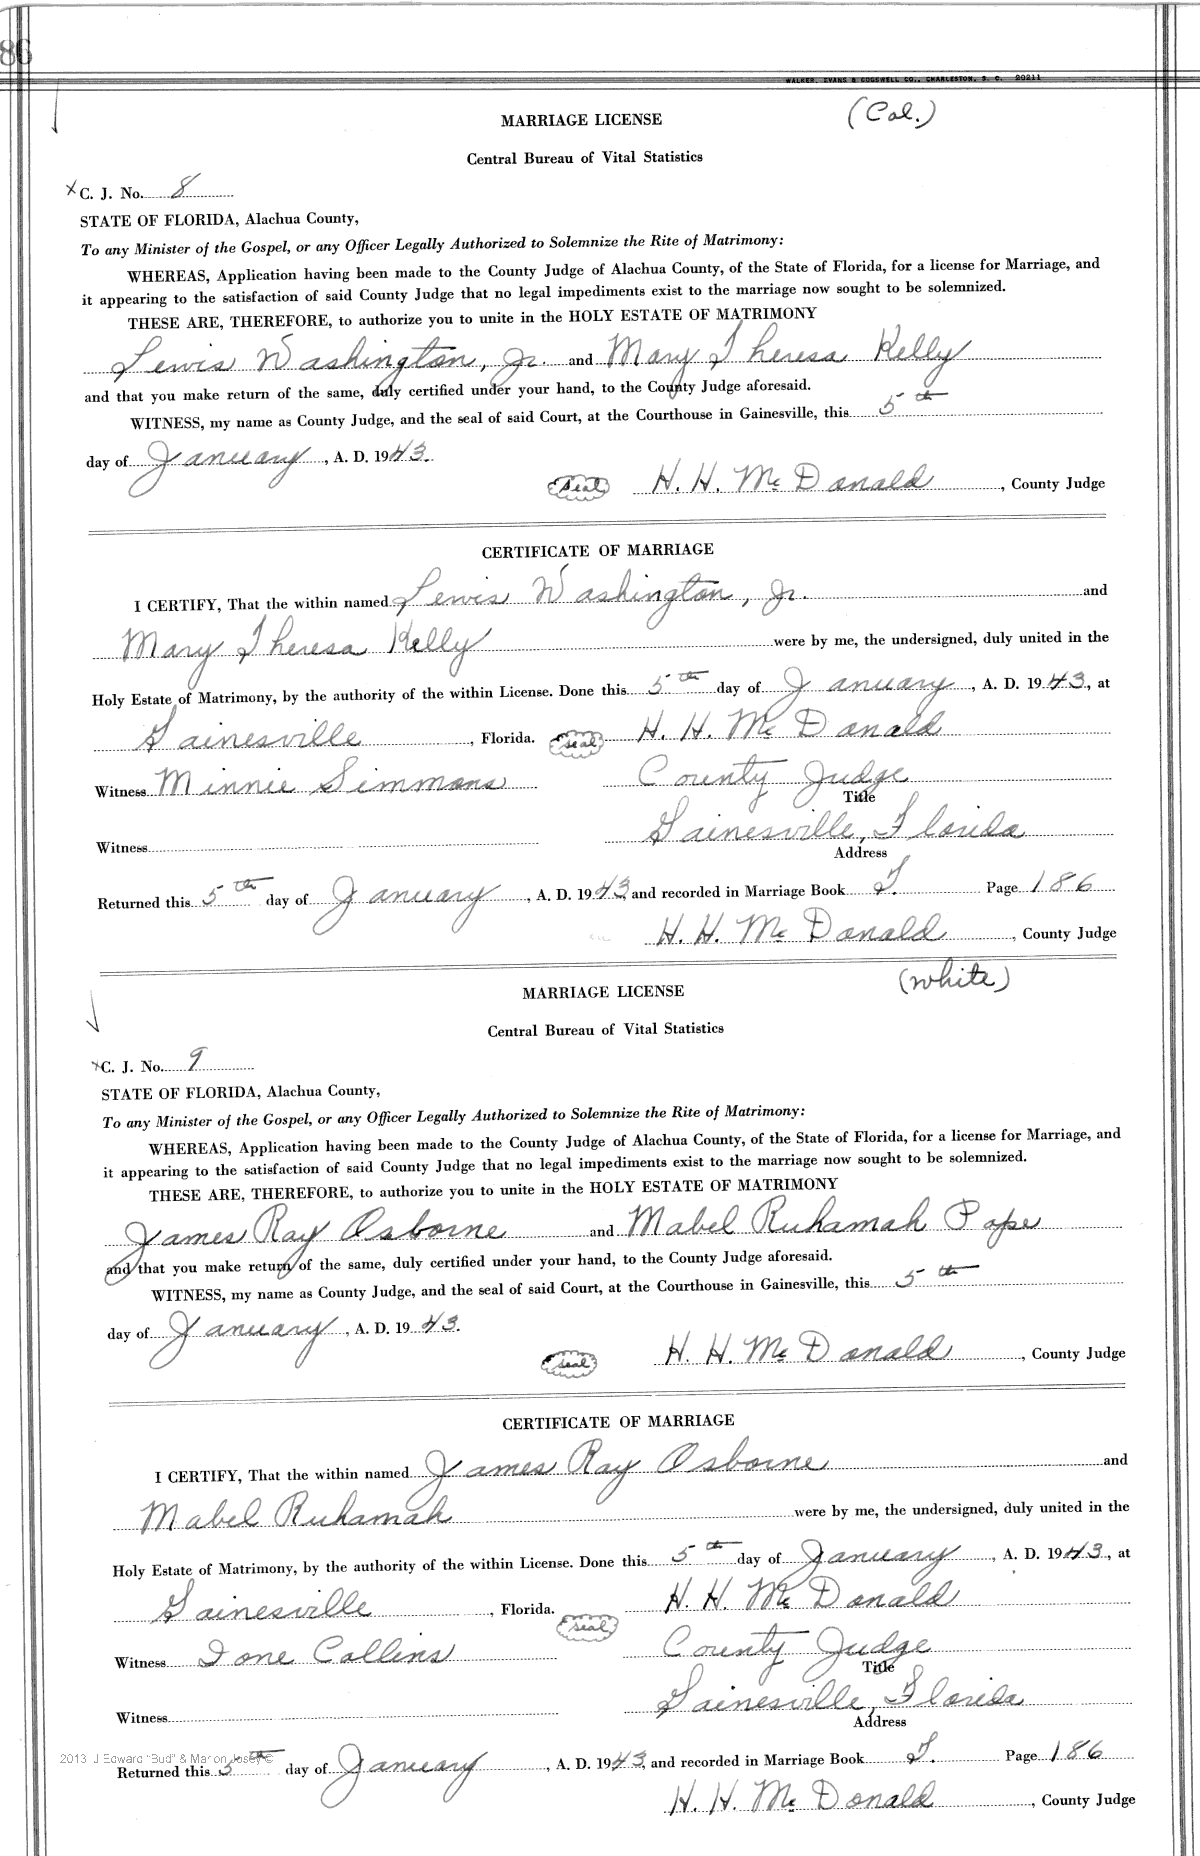 86
WALKER, EVANS & COGSWELL CO., CHARLESTON, S. C. 20211
MARRIAGE LICENSE (Col.)
Central Bureau of Vital Statistics
x C. J. No. 8
STATE OF FLORIDA, Alachua County,
To any Minister of the Gospel, or any Officer Legally Authorized to Solemnize the Rite of Matrimony:
WHEREAS, Application having been made to the County Judge of Alachua County, of the State of Florida, for a license for Marriage, and
it appearing to the satisfaction of said County Judge that no legal impediments exist to the marriage now sought to be solemnized.
THESE ARE, THEREFORE, to authorize you to unite in the HOLY ESTATE OF MATRIMONY
Lewis Washington, Jr. and Mary Theresa Kelly
and that you make return of the same, duly certified under your hand, to the County Judge aforesaid.
WITNESS, my name as County Judge, and the seal of said Court, at the Courthouse in Gainesville, this 5th
day of January, A. D. 1943.
seal H. H. McDonald, County Judge
CERTIFICATE OF MARRIAGE
I CERTIFY, That the within named Lewis Washington, Jr. and
Mary Theresa Kelly were by me, the undersigned, duly united in the
Holy Estate of Matrimony, by the authority of the within License. Done this 5th day of January, A. D. 1943, at
Gainesville, Florida. seal H. H. McDonald
Witness Minnie Simmons County Judge
Title
Gainesville, Florida
Witness
Address
Returned this 5th day of January, A. D. 1943, and recorded in Marriage Book T. Page 186
H. H. McDonald, County Judge
(white)
MARRIAGE LICENSE
Central Bureau of Vital Statistics
x C. J. No. 9
STATE OF FLORIDA, Alachua County,
To any Minister of the Gospel, or any Officer Legally Authorized to Solemnize the Rite of Matrimony:
WHEREAS, Application having been made to the County Judge of Alachua County, of the State of Florida, for a license for Marriage, and
it appearing to the satisfaction of said County Judge that no legal impediments exist to the marriage now sought to be solemnized.
THESE ARE, THEREFORE, to authorize you to unite in the HOLY ESTATE OF MATRIMONY
James Ray Osborne and Mabel Ruhamah Pope
and that you make return of the same, duly certified under your hand, to the County Judge aforesaid.
WITNESS, my name as County Judge, and the seal of said Court, at the Courthouse in Gainesville, this 5th
day of January, A. D. 1943.
seal H. H. McDonald, County Judge
CERTIFICATE OF MARRIAGE
I CERTIFY, That the within named James Ray Osborne and
Mabel Ruhamah were by me, the undersigned, duly united in the
Holy Estate of Matrimony, by the authority of the within License. Done this 5th day of January, A. D. 1943, at
Gainesville, Florida. seal H. H. McDonald
Witness Ione Collins County Judge
Title
Gainesville, Florida
Witness
Address
2013 J Edward "Bud" & Marion Josey ©
Returned this 5th day of January, A. D. 1943, and recorded in Marriage Book T. Page 186
H. H. McDonald, County Judge